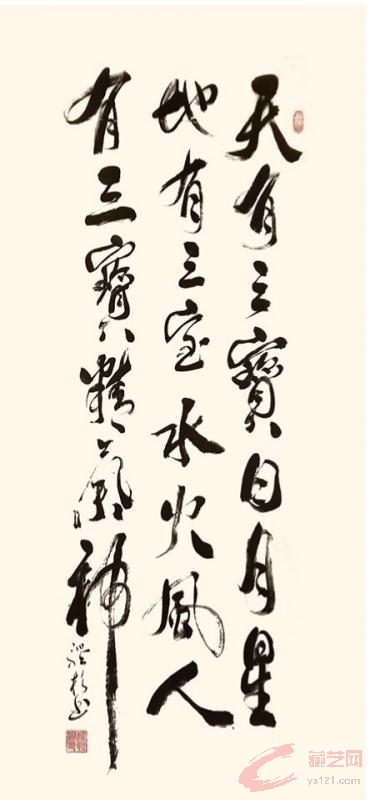 天有三寶日月星
地有三宝水火風人
有三寶精氣神
藏艺网
ys121.com